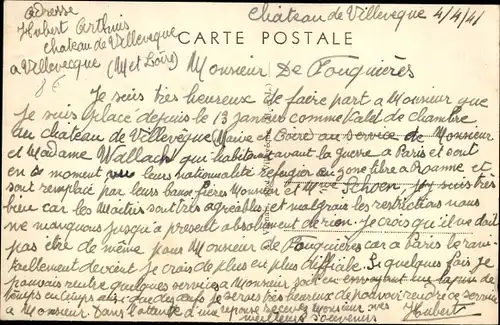 Adresse
Hubert Arthuis
chateau de Villevêque
a Villevêque (M et Loire)
Château de Villeveque 4/4/41
CARTE POSTALE
Monsieur De Fouquières
Je suis très heureux de faire part a Monsieur que
je suis placé depuis le 13 janvier comme Valet de chambre
au chateau de Villevêque Maine et Loire au service de Monsieur
et Madame Wallach qui habitaient avant la guerre a Paris et sont
en ce moment vu leurs nationnalité réfugier en zone libre a Roanne et
sont remplacé par leurs beaux frères Monsieur et Mme Schoen j'y suis très
bien car les Maitres sont très agréables et malgrais les restrictions nous
ne manquons jusqu'a present absolument de rien. Je crois qu'il ne doit
pas être de même pour Monsieur De Fouquières car a Paris le ravi-
taillement devient je crois de plus en plus difficile. Si quelques fois je
pouvais rendre quelques services a Monsieur soit en envoyant un lapin de
temps en temps je serais très heureux de pouvoir rendre ce service
a Monsieur. Dans l'attente d'une reponse recevez Monsieur mes
meilleurs souvenirs Hubert